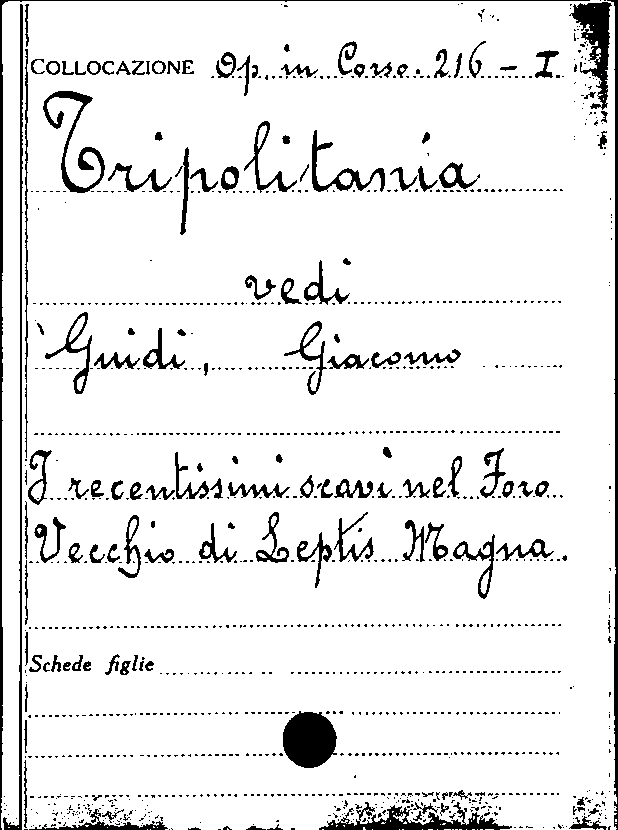 COLLOCAZIONE Op. in Corso. 216 - I
Tripolitania
vedi
Guidi, Giacomo
I recentissimi scavi nel Foro
Vecchio di Leptis Magna.
Schede figlie